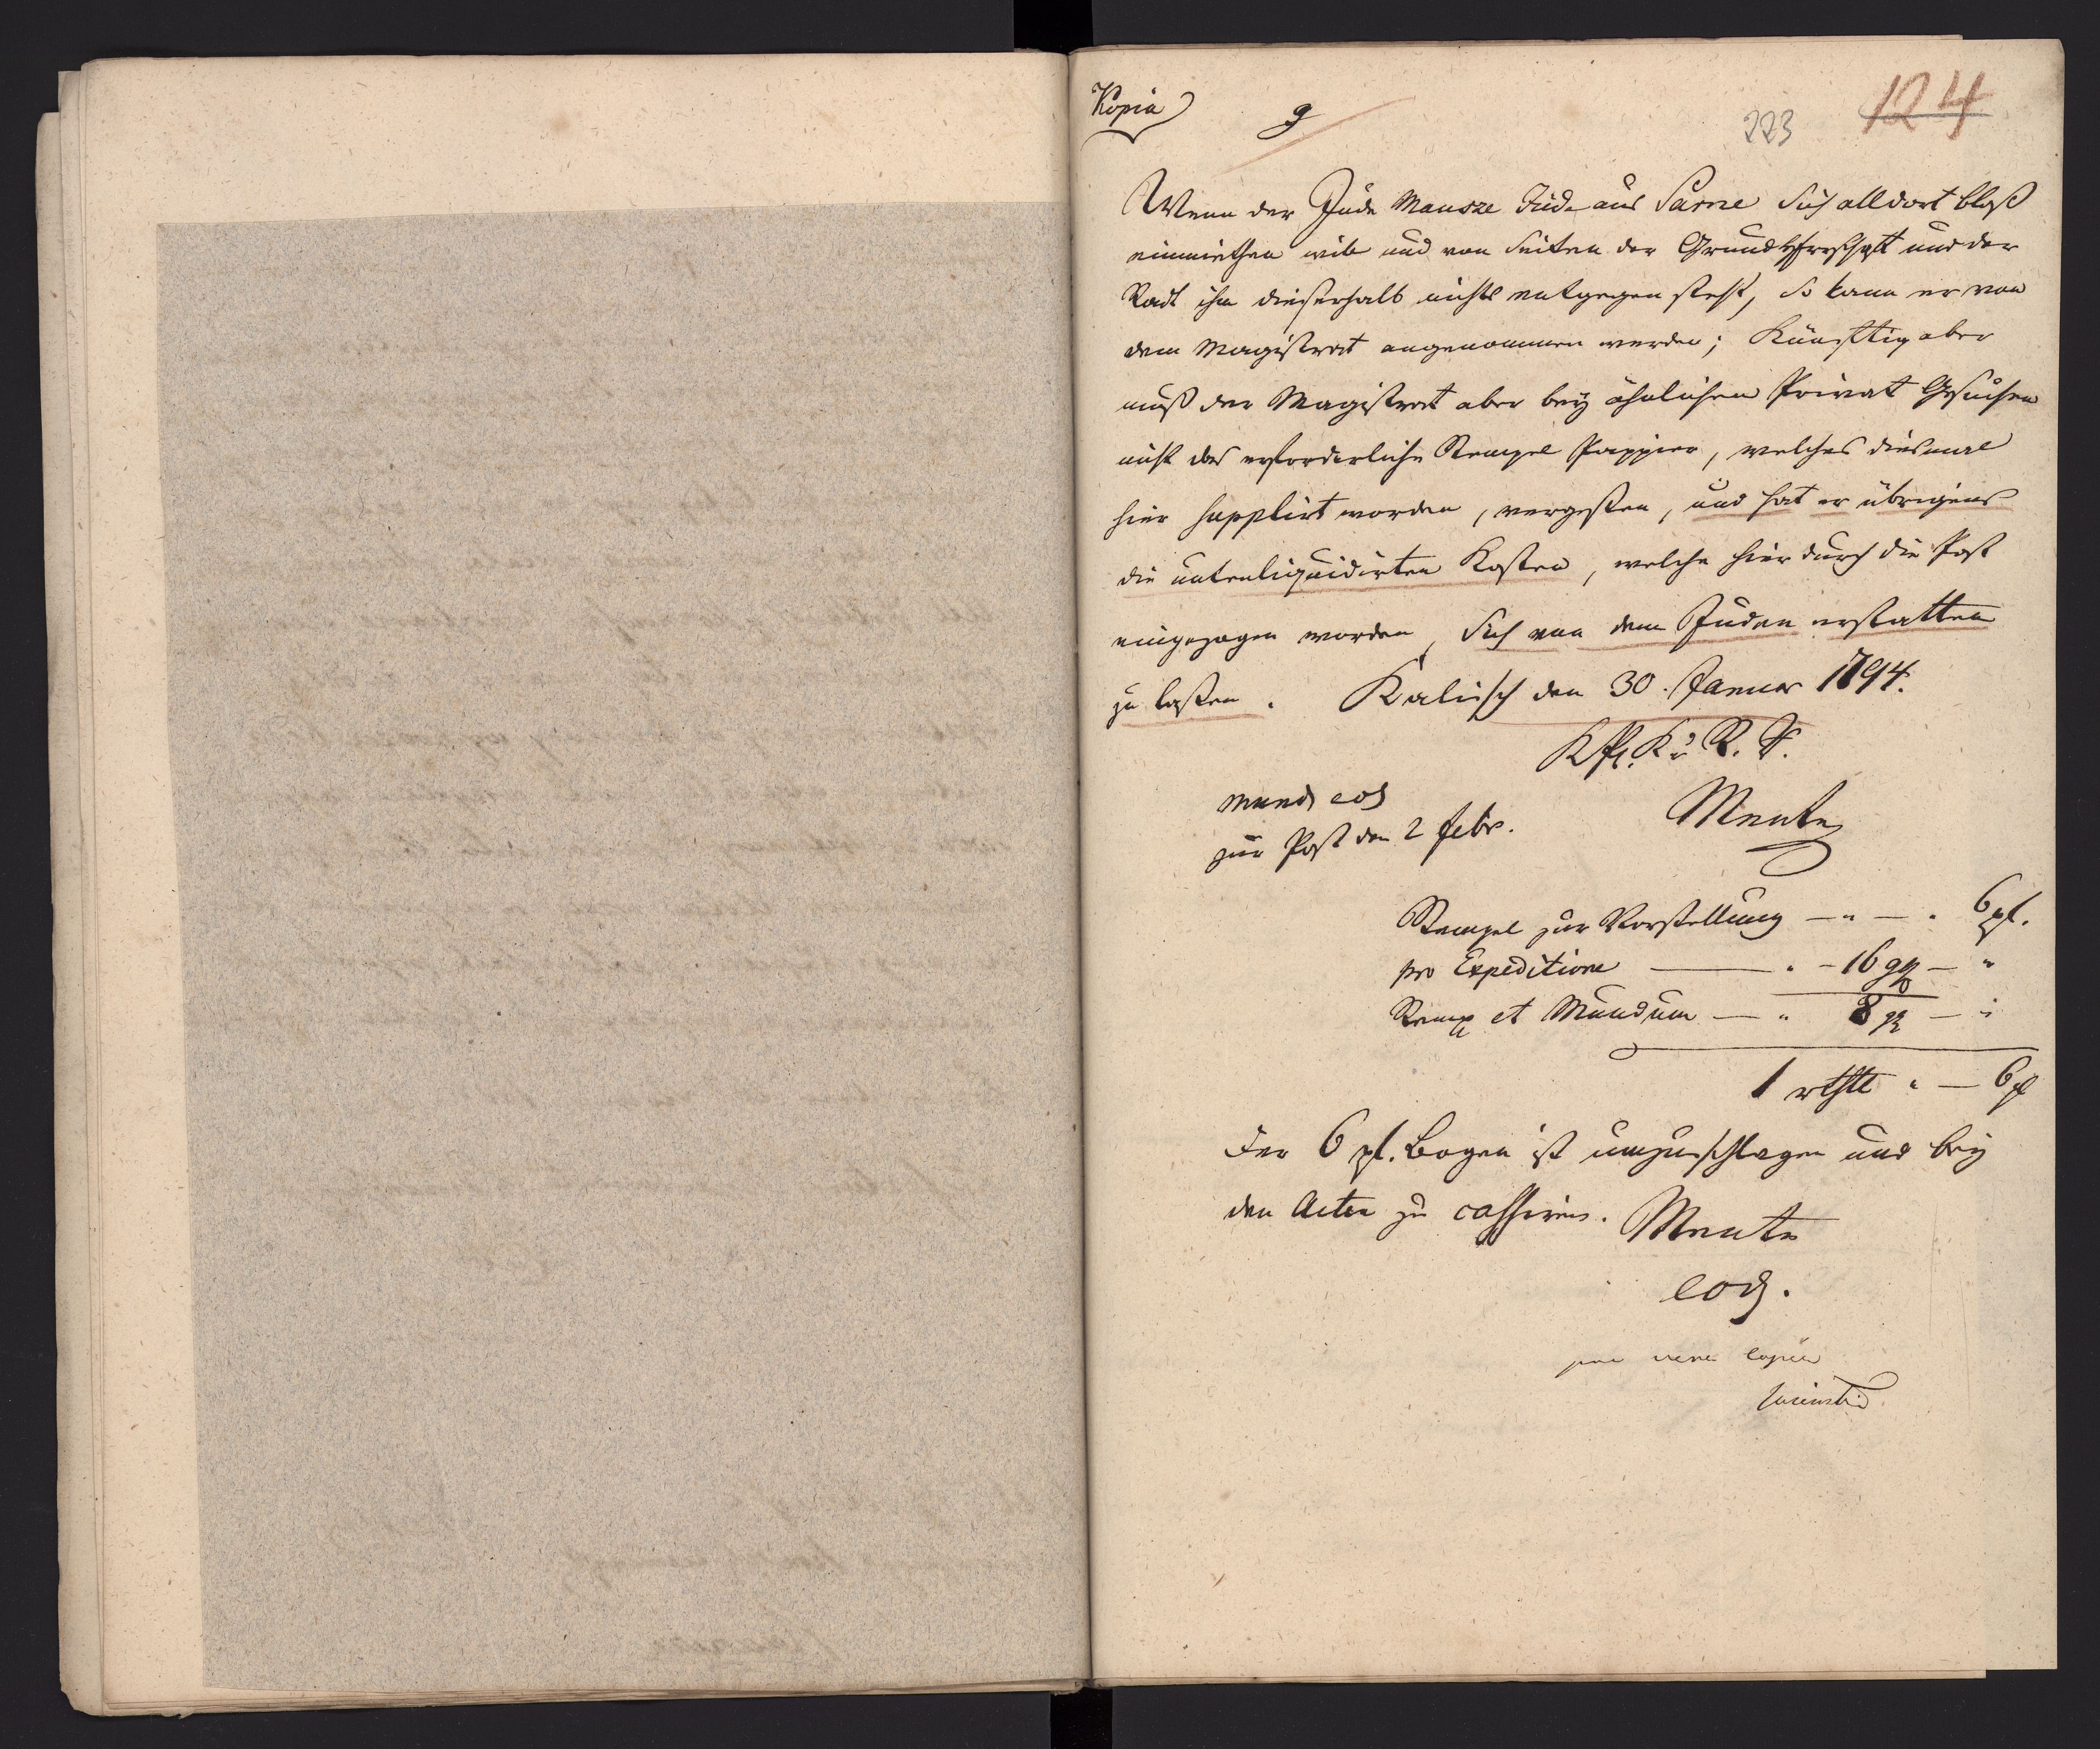 Kopia
9
223
124
Wenn der Jude Mausze Jud. aus Sarne sich alldort bloß
einmiethen will und von Seiten der Grundherrschaft und der
Stadt ihm dieserhalb nichts entgegen steht, so kann er von
dem Magistrat angenommen werden; Künfftig aber
muß der Magistrat aber bey ähnlichen Privat Gesuchen
nicht das erforderliche Stempel Pappier, welches diesmal
hier supplirt worden, vergeßen, und hat er übrigens
die untenliquidirten Kosten, welche hier durch die Post
eingezogen worden, sich von dem Juden erstatten
zu laßen. Kalisch den 30. Januar 1794.
K. Pr. K. u. D.
mund eod
zur Post den 2 Febr.
Mente
Stempel zur Vorstellung — " — " 6 pf.
pro Expeditione — " — 16 ggr — "
Stemp et Mundum — " 8 gr — "
1 rthlr " — 6 pf
Der 6 pf. Bogen ist umzuschlagen und bey
den Acten zu cassiren. Mente
eod.
pro vera copia